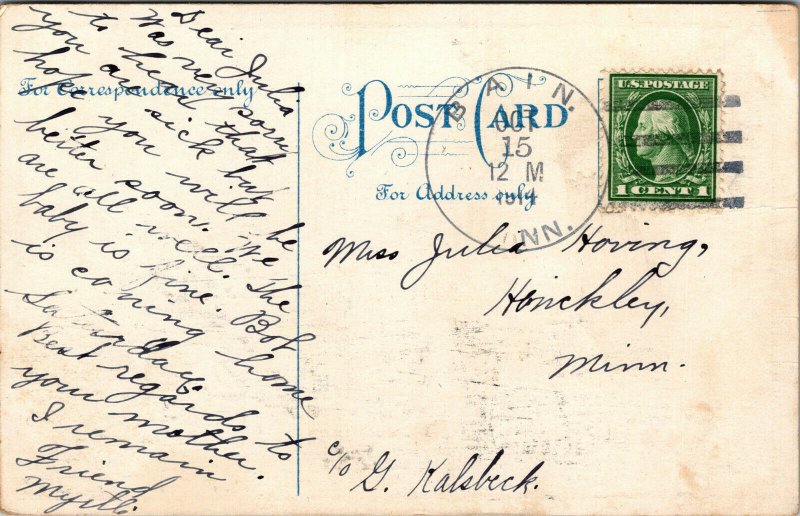 Dear Julia
Was very sorry
to hear that
you are sick but
hope you will be
better soon. We
are all well. The
baby is fine. Bob
is coming home
Saturday.
Best regards to
your mother.
I remain
Friend
For Correspondence only
POST CARD
For Address only
BAIN.
OCT
15
12 M
1914
MINN.
U.S. POSTAGE
1 CENT 1
Miss Julia Hoving,
Hinckley,
Minn.
c/o G. Kalsbeck.